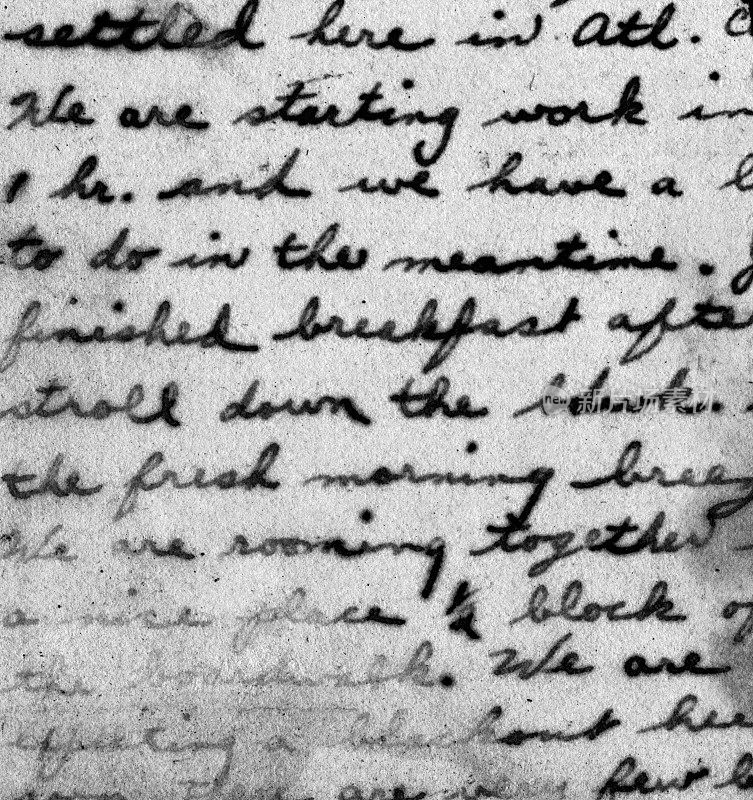 settled here in Atl. C
We are starting work in
1 hr. and we have a
to do in the meantime.
finished breakfast afte
stroll down the
the fresh morning breez
We are rooming together
a nice place ½ block of
the boardwalk. We are
expecting a blackout
are very few
new 新图片素材